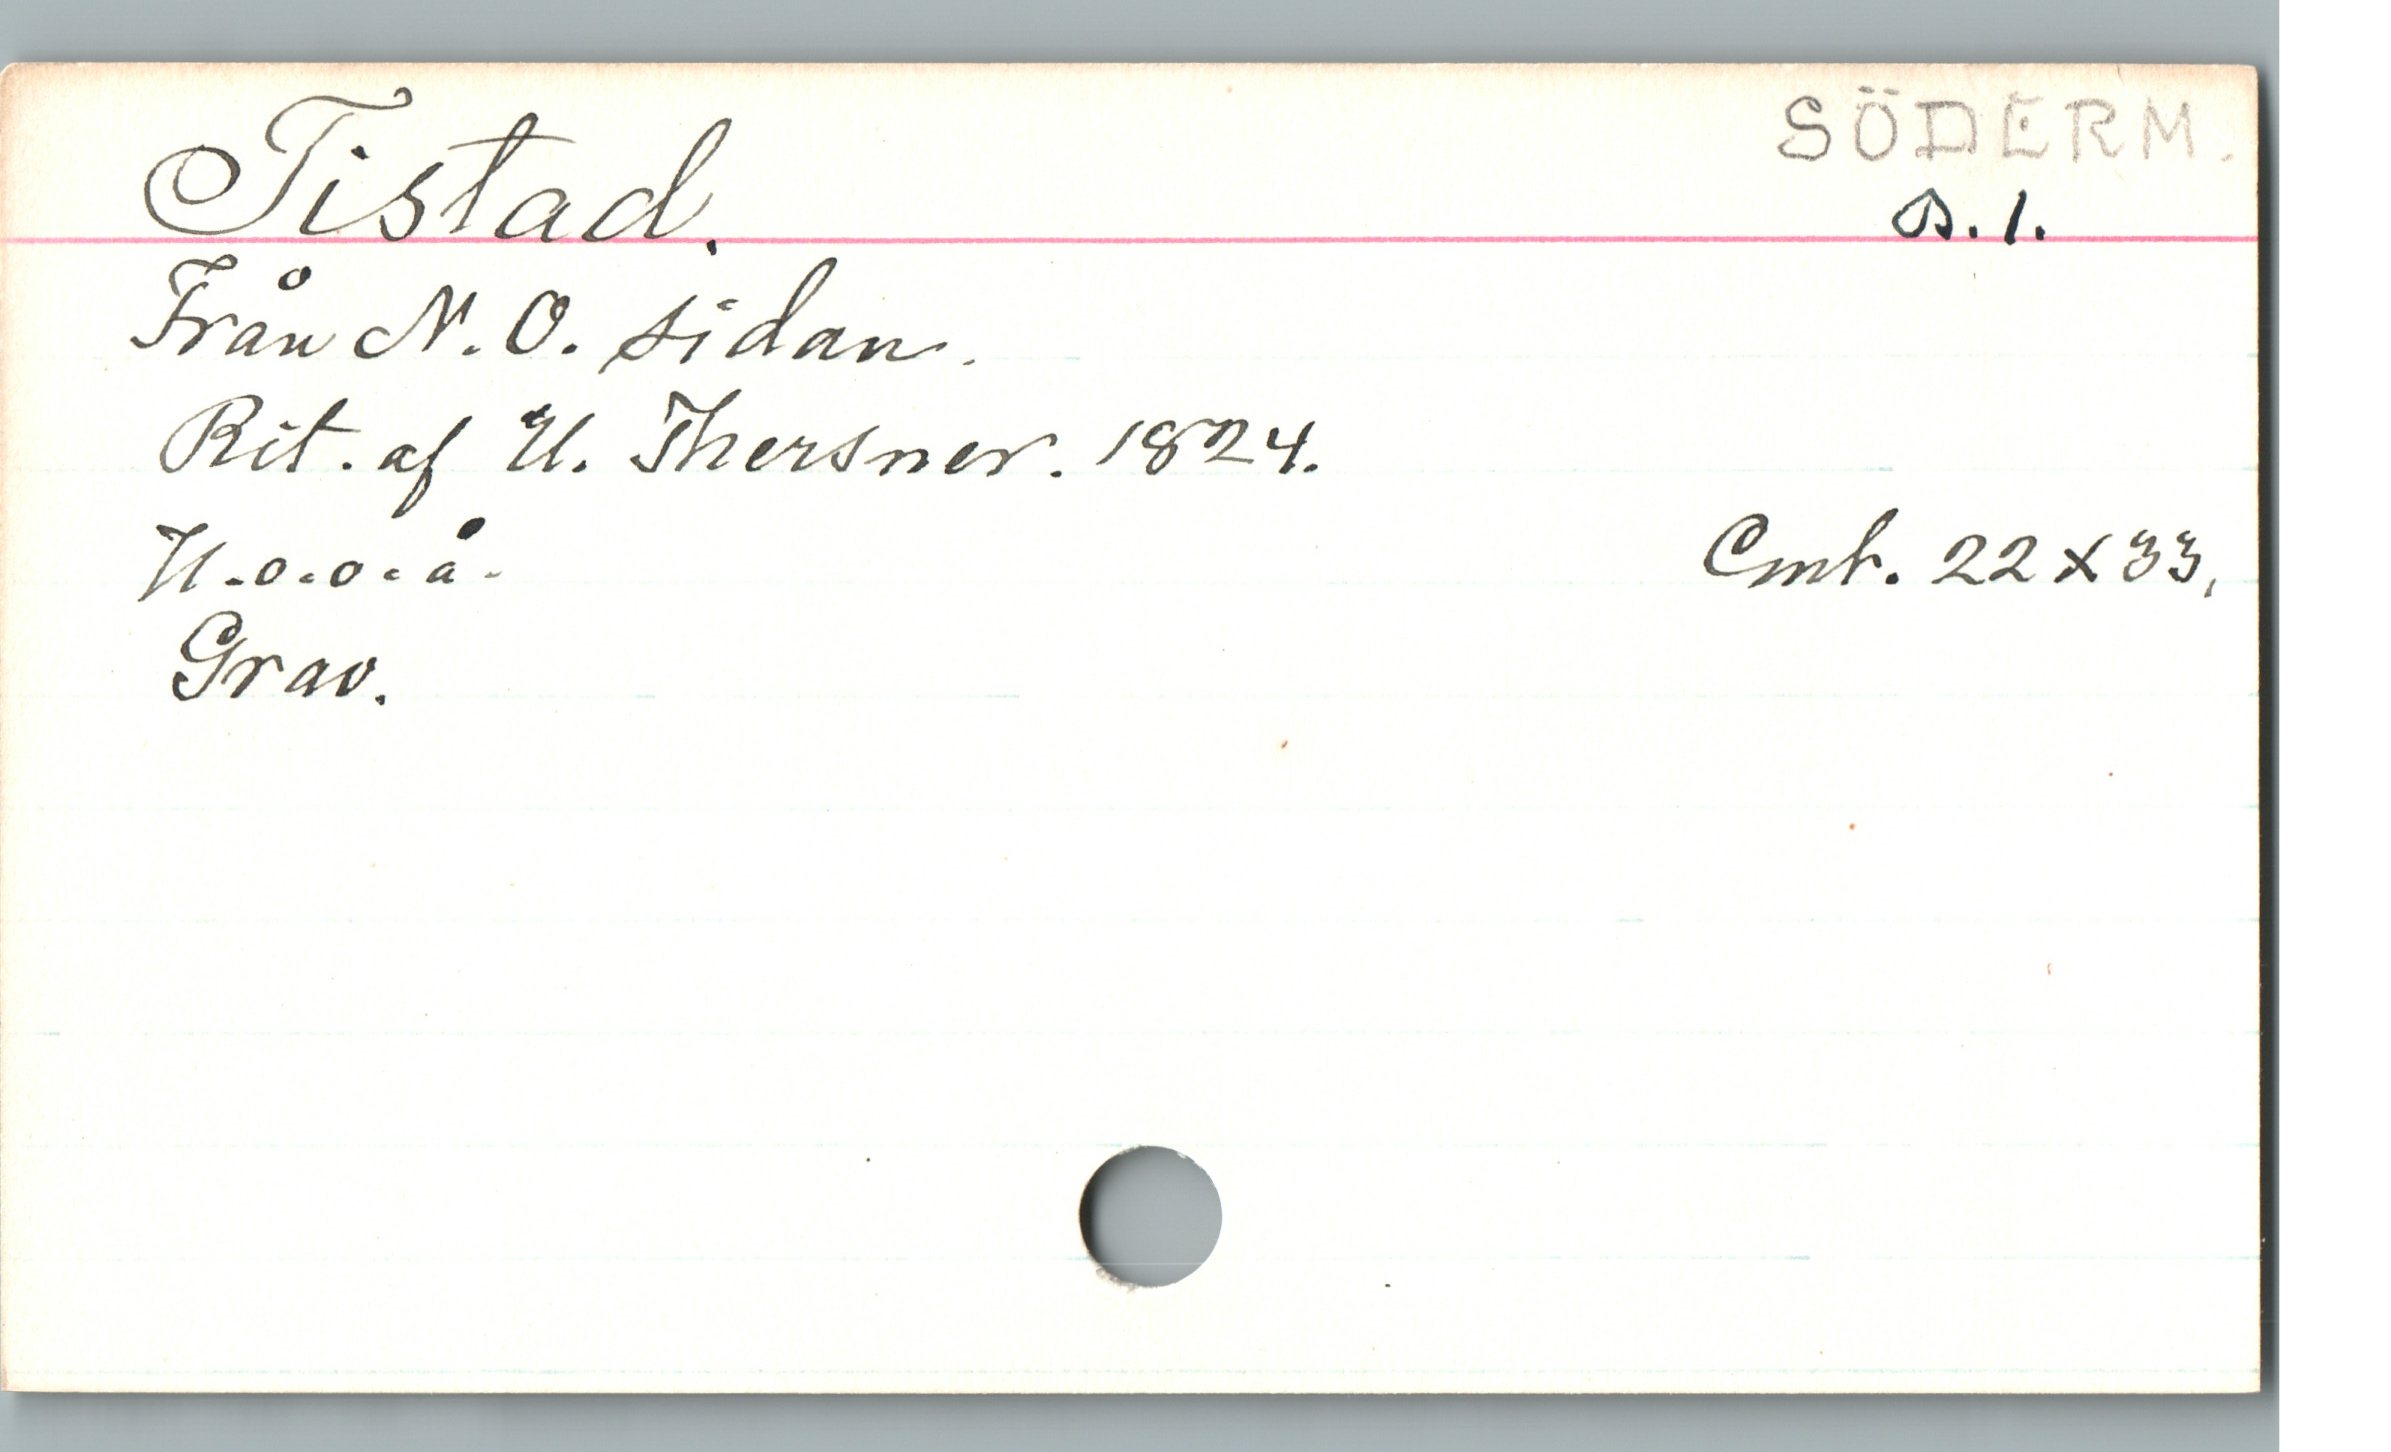 SÖDERM.
Tistad.
s. 1.
Från N. O. sidan.
Rit. af U. Thersner. 1824.
U.o.o.å.
Cmt. 22 x 33,
Grav.